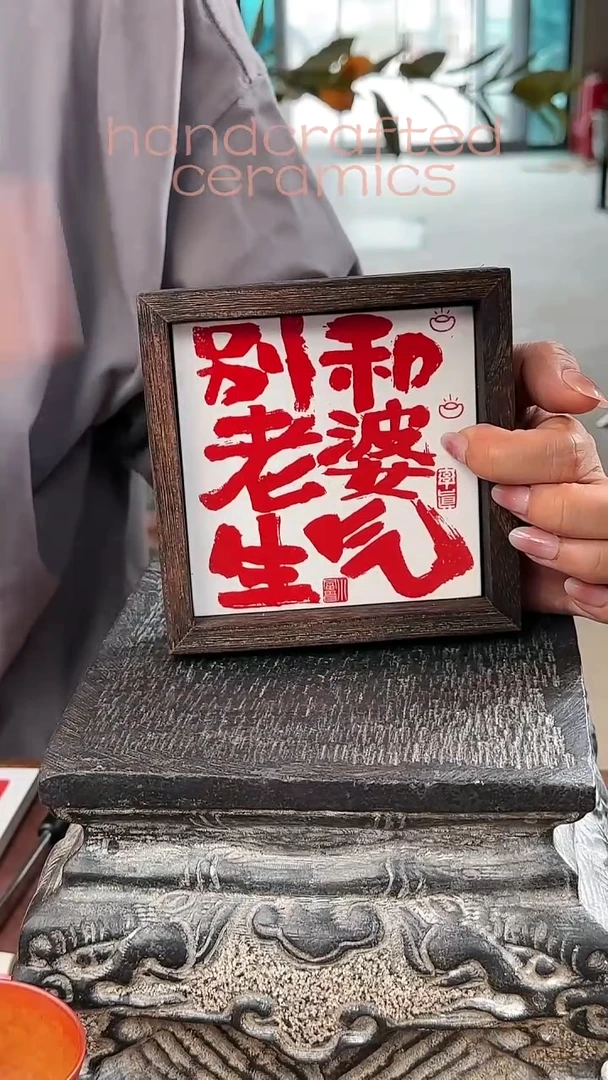 handcrafted
ceramics
别和
老婆
生气